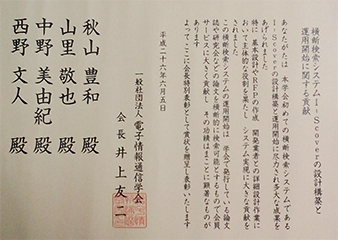 横断検索システムI-Scoverの設計構築と
運用開始に関する貢献
あなたがたは　本学会初めての横断検索システムである
I-Scoverの設計構築と運用開始に尽力され多大な成果を
あげられました
特に基本設計やRFPの作成　開発業者との詳細設計作業に
おいて主体的な役割を果たし　システム実現に大きく貢献を
されました
この横断検索システムの運用開始は　学会で発行している論文
誌や研究会などの論文を横断的に検索可能とするもので会員
サービスに大きく貢献し　その功績はまことに顕著なものが
あります
よってここに会長特別表彰として賞状を贈呈し表彰いたします
平成二十六年六月五日
一般社団法人 電子情報通信学会
会長 井上友二
秋山 豊和 殿
山里 敬也 殿
中野 美由紀 殿
西野 文人 殿